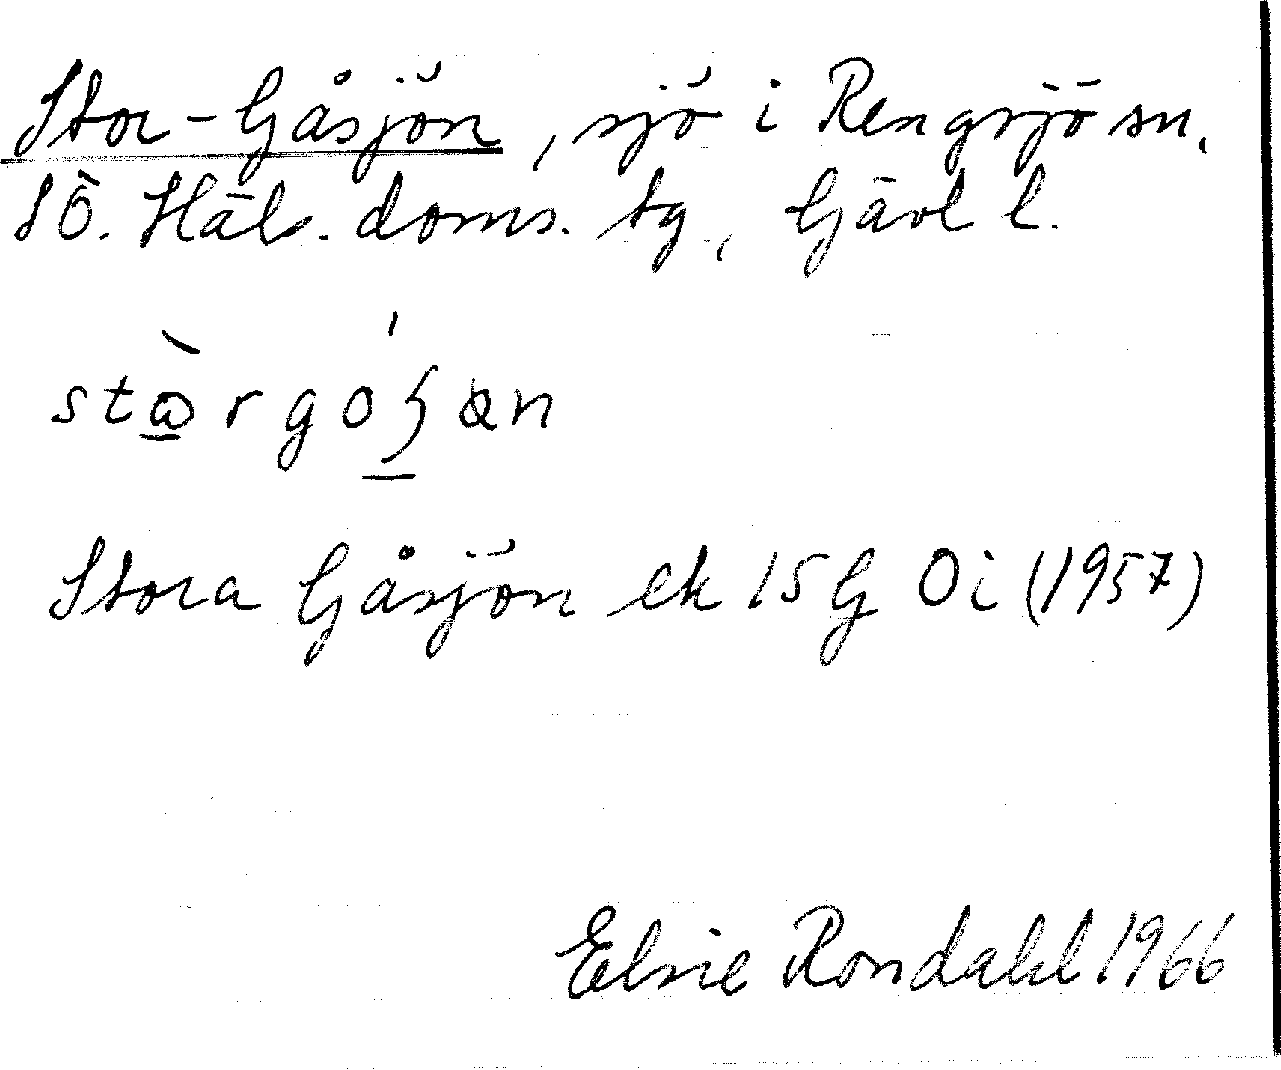 Stor-Gåsjön, sjö i Rengsjö sn.
SÖ. Häls. doms. tg, Gävl l.
Stora Gåsjön ek 15G 0i (1957)
Elsie Rondahl 1966